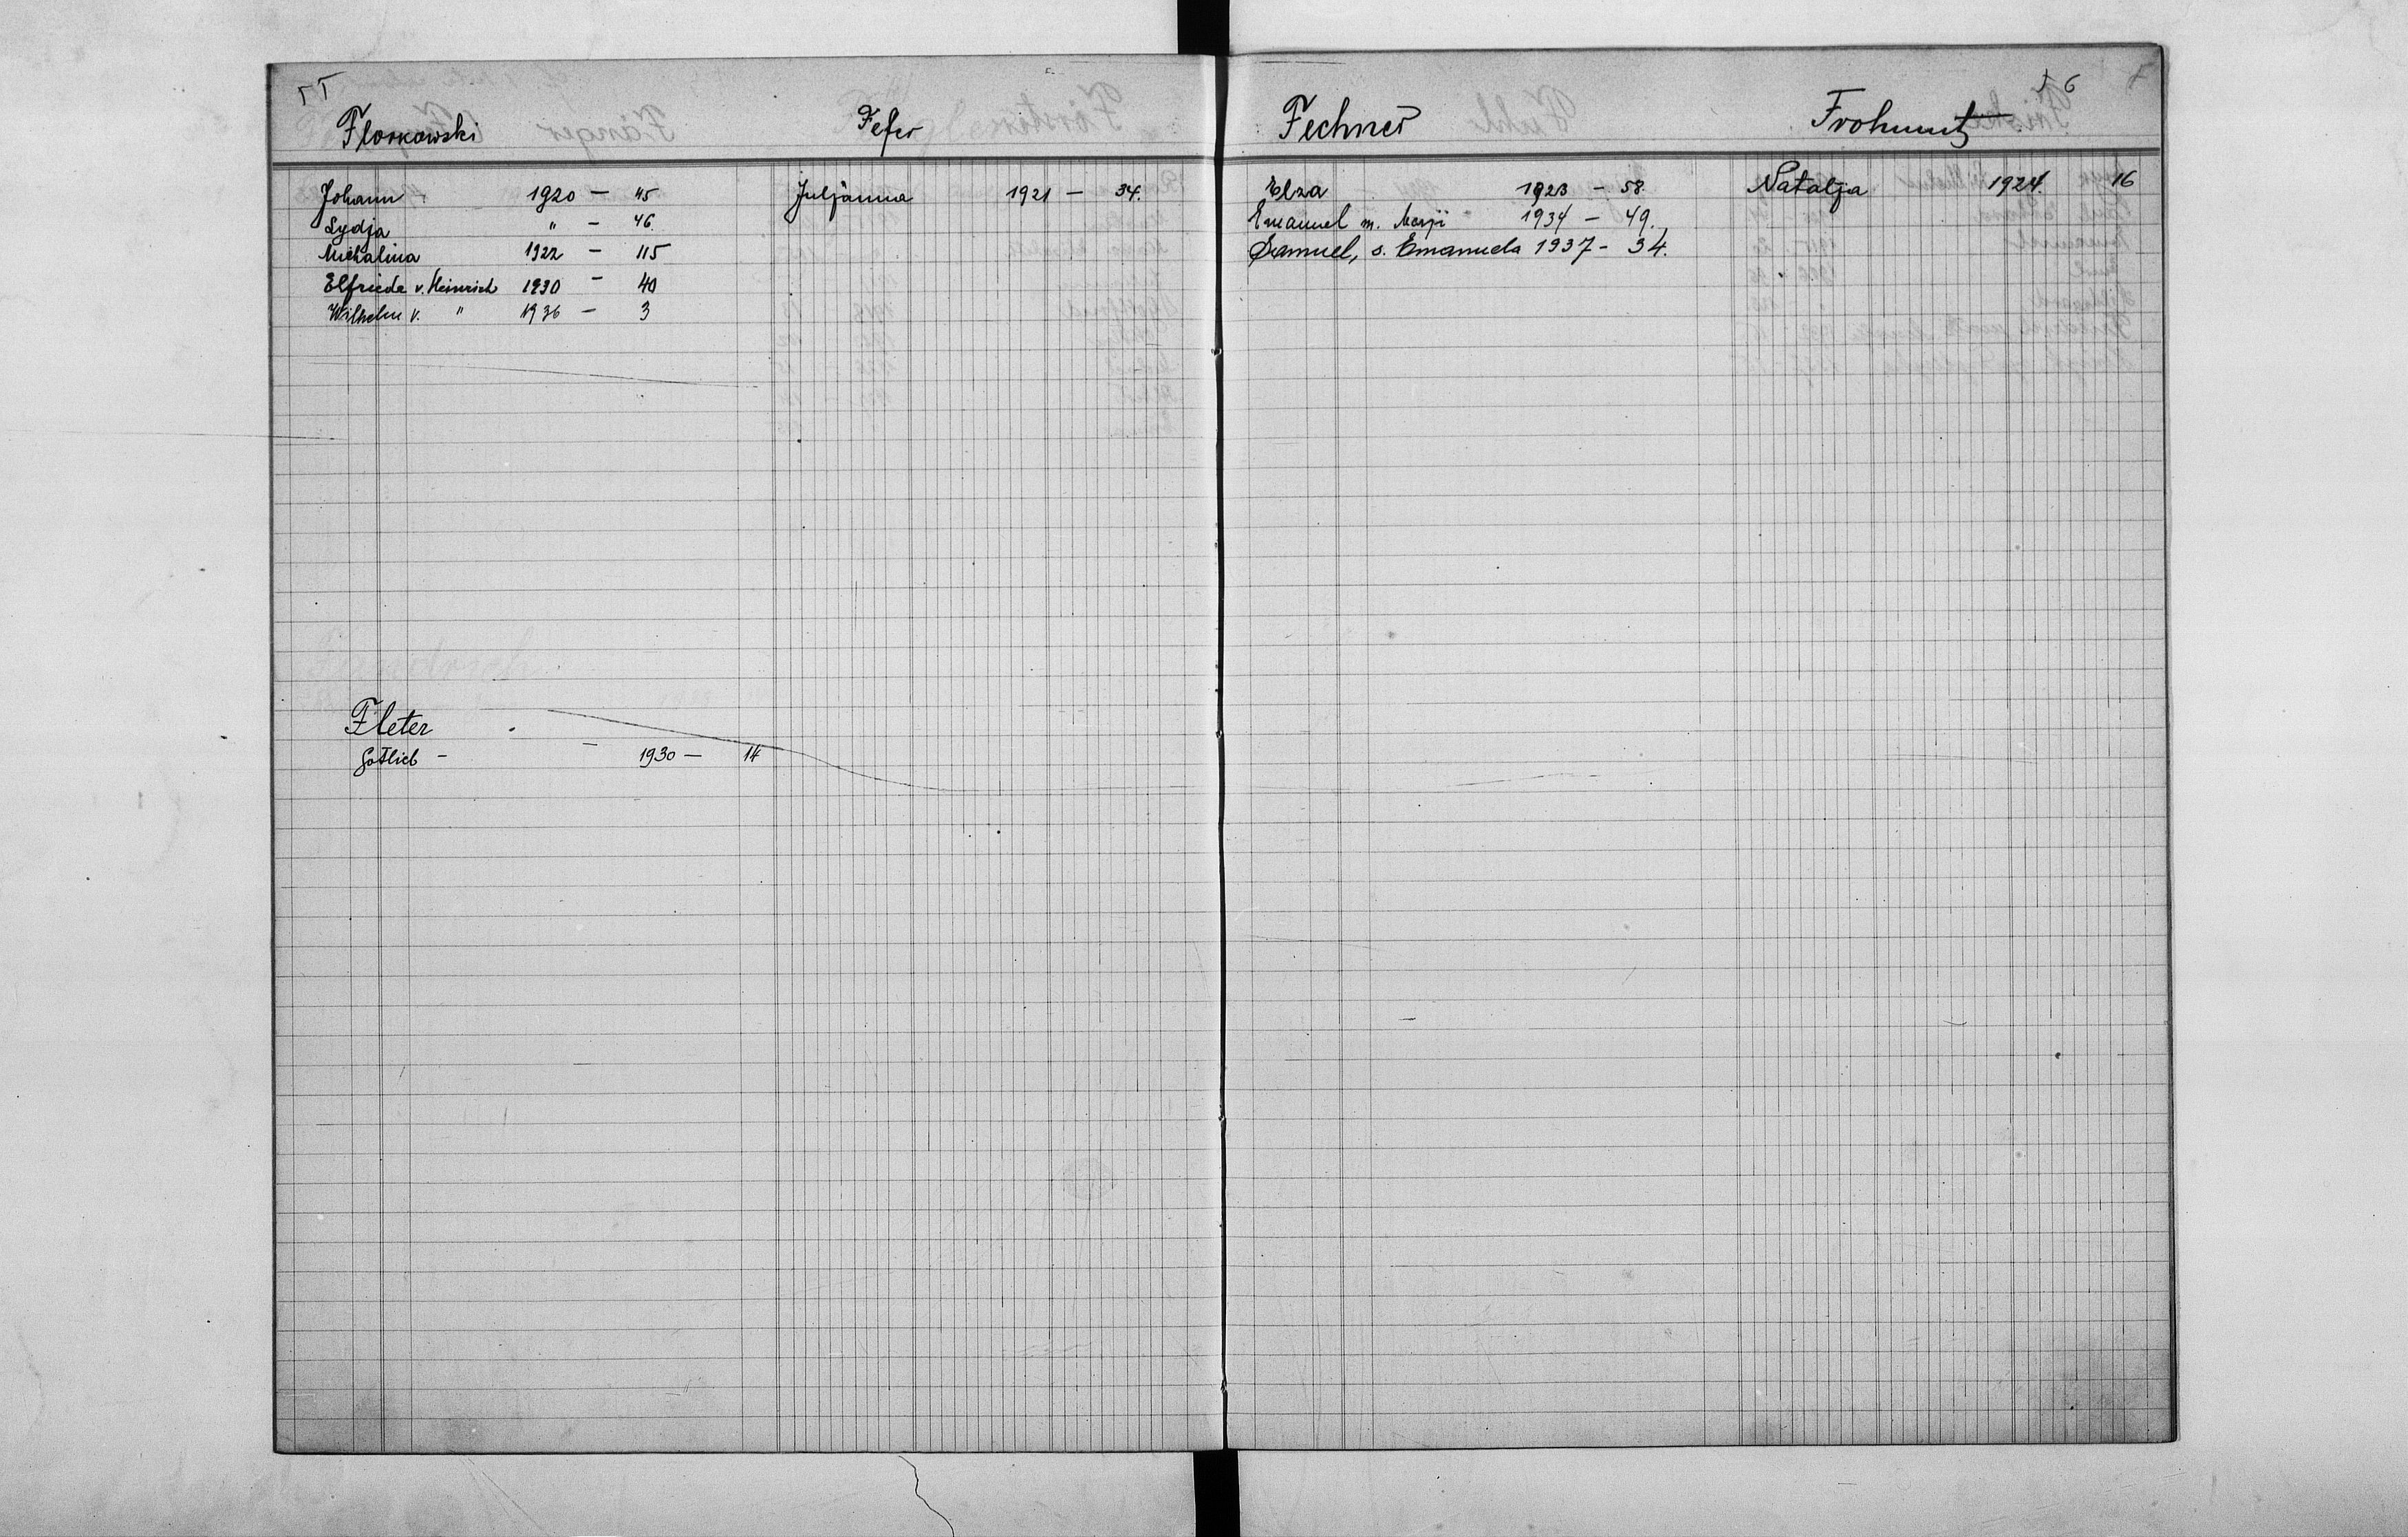 55
Florkowski
Johann 1920 — 45
Lydja " — 46.
Michalina 1922 — 115
Elfrieda v. Heinrich 1930 — 40
Wilhelm v. " 1936 — 3
Fleter
Gotlieb — — 1930 — 14
Fefer
Juljanna 1921 — 34.
56
F
Fechner
Elza 1923 — 58
Emanuel m. Marji 1934 — 49.
Samuel, s. Emanuela 1937 — 34.
Natalja 1924. 16